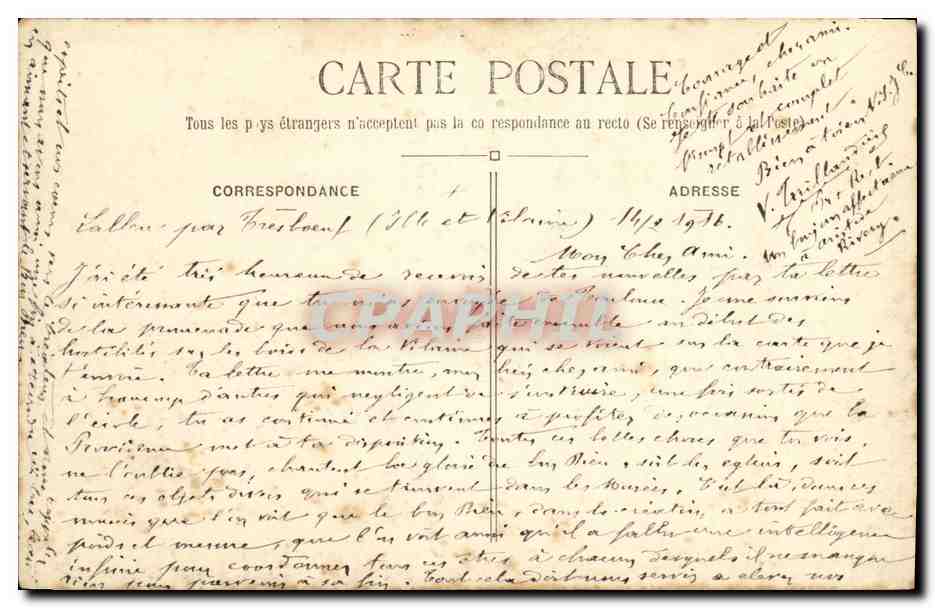 CARTE POSTALE
Tous les pays étrangers n'acceptent pas la correspondance au recto (Se renseigner à la Poste)
CORRESPONDANCE
ADRESSE
Lalleu par Tresboeuf (Ille et Vilaine) 14/2 1916.
Mon Cher Ami.
J'ai été très heureux de recevoir de tes nouvelles par ta lettre
si intéressante que tu m'as envoyée de Toulouse. Je me souviens
de la promenade que nous avons faite ensemble au début des
hostilités sur les bords de la Vilaine qui se voient sur la carte que je
t'envoie. Ta lettre me montre, mon bien cher ami, que contrairement
à beaucoup d'autres qui négligent de s'instruire, une fois sortis de
l'école, tu as continué et continues à profiter des occasions que la
Providence met à ta disposition. Toutes ces belles choses que tu vois,
ne l'oublie pas, chantent la gloire du bon Dieu, soit les églises, soit
tous ces objets divers qui se trouvent dans les Musées. C'est là, dans ces
musées que l'on voit que le bon Dieu, dans la création, a tout fait avec
poids et mesure, que l'on voit aussi qu'il a fallu une intelligence
infinie pour coordonner tous ces êtres à chacun desquels il ne manque
rien pour parvenir à sa fin. Tout cela doit nous servir à élever nos
Courage et
confiance, cher ami.
Je te souhaite un
prompt et complet
rétablissement
Bien à toi en N.S.J.C.
CARTE